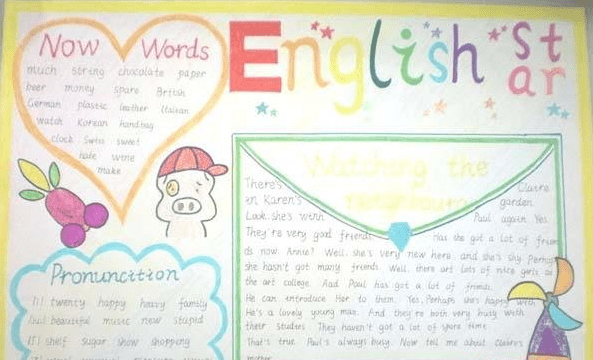 English Star
Now Words
much string chocolate paper
beer money spare British
German plastic leather Italian
watch Korean handbag
clock Swiss sweet
hate wine
make
Pronuncition
twenty happy heavy family
beautiful music new stupid
shelf sugar show shopping
Watching the
neighbours
There's Claire
in Karen's garden.
Look, she's with Paul again. Yes.
They're very good friends. Has she got a lot of frien
ds now. Annie? Well, she's very new here, and she's shy. Perhaps
she hasn't got many friends. Well, there are lots of nice girls at
the art college. And Paul has got a lot of friends.
He can introduce Her to them. Yes, Perhaps she's happy with
He's a lovely young man. And they're both very busy with
their studies. They haven't got a lot of spare time
That's true. Paul's always busy. Now tell me about
mother